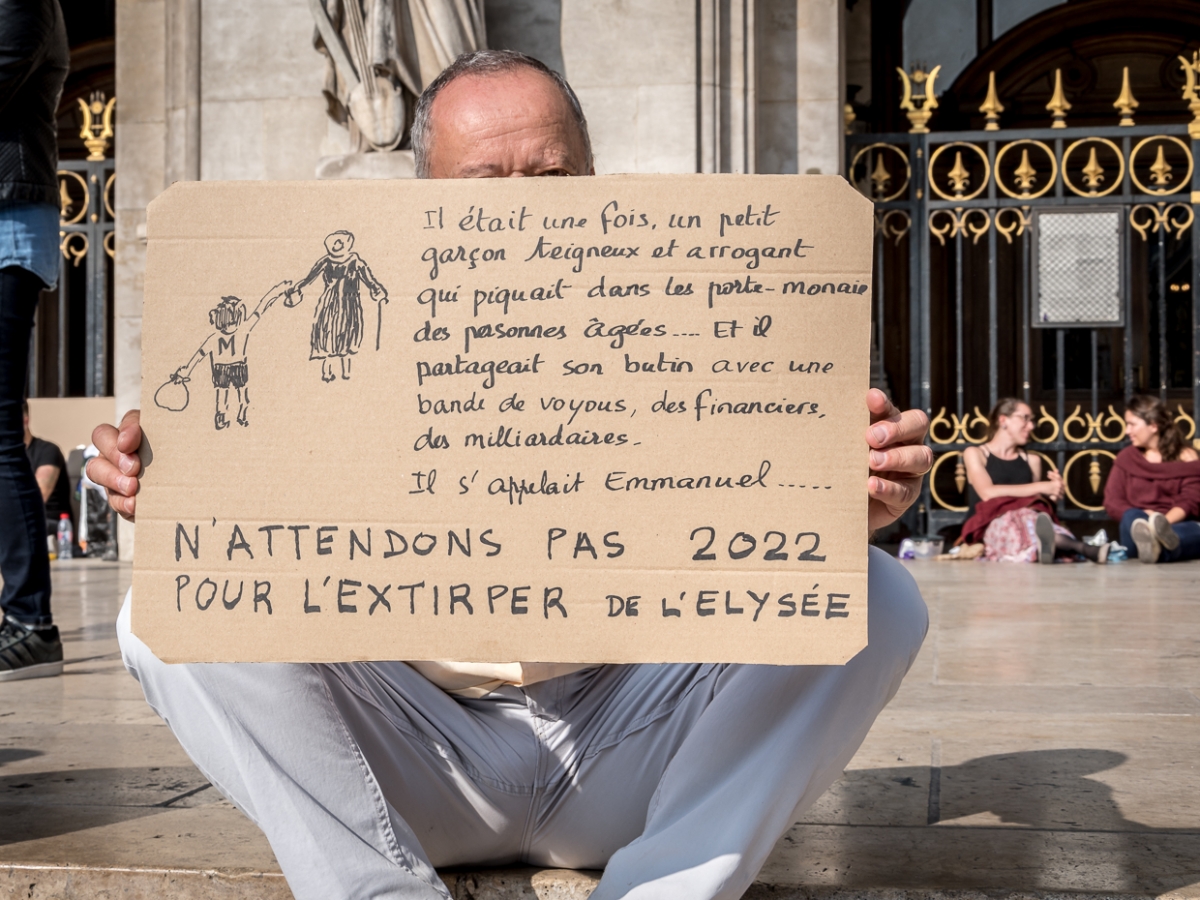 M
Il était une fois, un petit
garçon teigneux et arrogant
qui piquait dans les porte-monaie
des personnes âgées.... Et il
partageait son butin avec une
bande de voyous, des financiers,
des milliardaires.
Il s'appelait Emmanuel.....
N'ATTENDONS PAS 2022
POUR L'EXTIRPER DE L'ELYSÉE